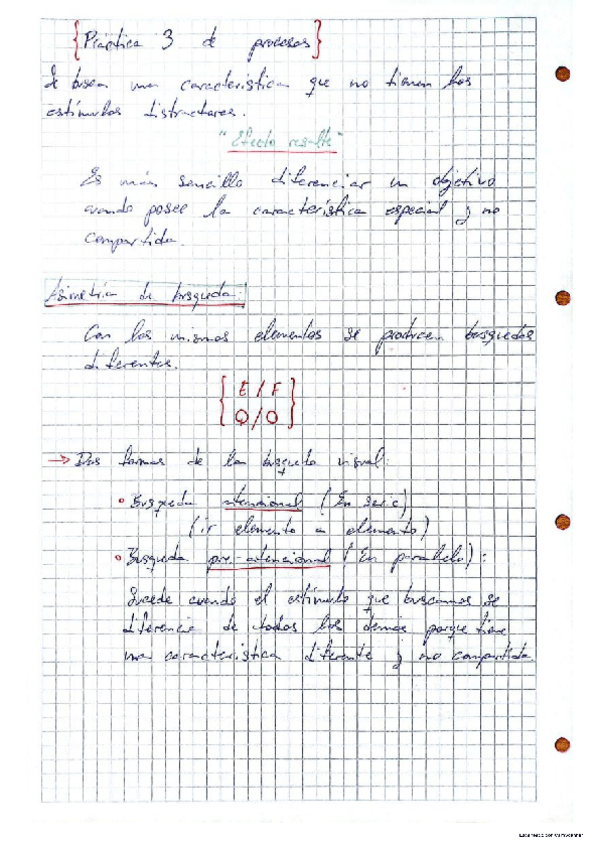 {Práctica 3 de procesos}
Se busca una característica que no tienen los
estímulos distractores.
"Efecto resalte"
Es más sencillo diferenciar un objetivo
cuando posee la característica especial y no
compartida.
Asimetría de búsqueda:
Con los mismos elementos se producen búsquedas
diferentes.
{E/F
Q/O}
→ Dos formas de la búsqueda visual:
• Búsqueda atencional (En serie)
(ir elemento a elemento)
• Búsqueda pre-atencional (En paralelo):
Sucede cuando el estímulo que buscamos se
diferencia de todos los demás porque tiene
una característica diferente y no compartida.